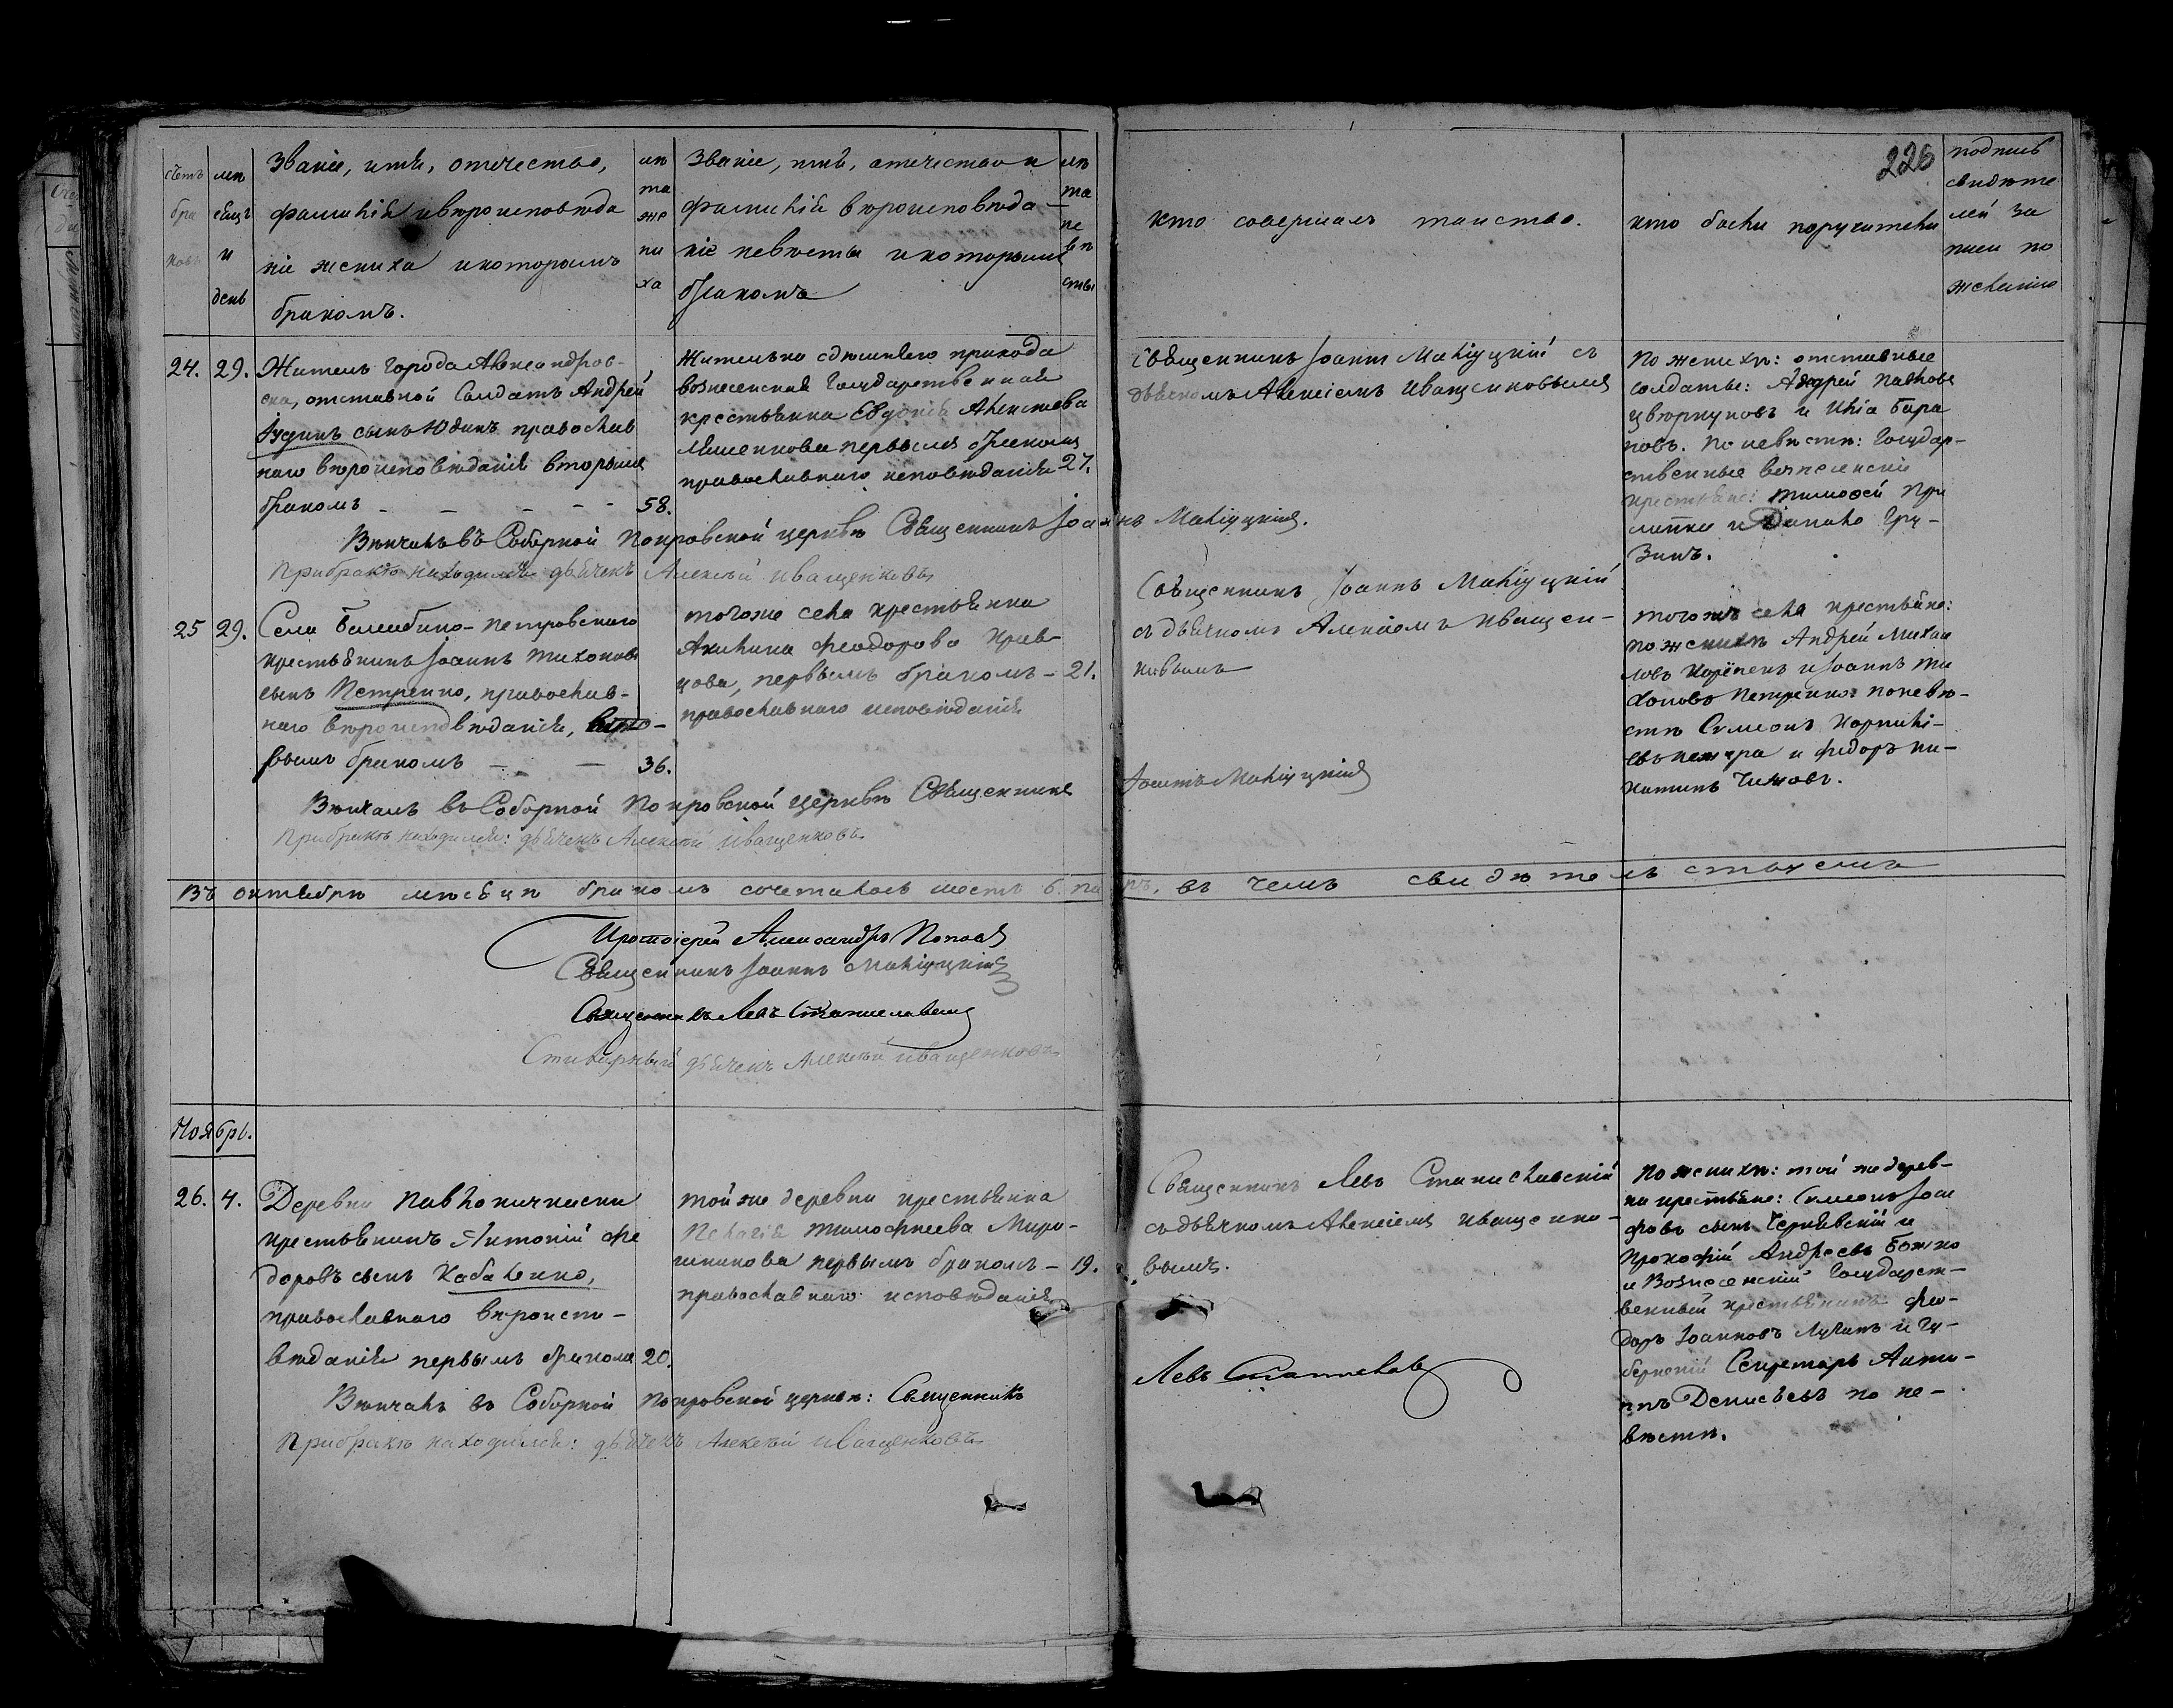 226
счетъ бра ковъ
мѣ сѣцъ и день
Званіе, имѣ, отечество,
фамилій и вѣроисповѣда
ніе жениха и которымъ
бракомъ.
лѣ та же ни ха
Званіе, имѣ, отечество и
фамилій вѣроисповѣда-
ніе невѣсты и которымъ
бракомъ
лѣ та не вѣ сты
кто совершалъ таинство.
кто были поручители
подпись
свидѣте
лей за
писи по
желанію
24. 29. Житель города Александров-
ска, отставной Солдатъ Андрей
Іудинъ сынъ Юдинъ православ
наго вѣроисповѣданія вторымъ
бракомъ - - - - - 58.
Жителька здѣшняго прихода
вознесенская Государственная
крестьянка Евдокія Алексѣева
первымъ бракомъ
православнаго исповѣданія 27.
Священникъ Іоаннъ Маліуцкій съ
дьячкомъ Алексіемъ Иващенковымъ
По женихѣ: отставные
солдаты: Андрей Павловъ
и Илія Бара
новъ. По невѣстѣ: Государ-
ственные вознесенскіи
крестьяне: Тимофей При
липка и Данило Гру-
зинъ.
Вѣнчалъ въ Соборной Покровской церквѣ Священникъ Іоаннъ Маліуцкій.
При бракѣ находился дьячекъ Алексѣй Иващенковъ
25 29. Села Балабино-Петровскаго
крестьянинъ Іоаннъ Тихоновъ
сынъ Петренко, православ-
наго вѣроисповѣданія,
вымъ бракомъ - - 36.
того же села крестьянка
Акилина Феодорова Крав-
цова, первымъ бракомъ - 21.
православнаго исповѣданія
Священникъ Іоаннъ Маліуцкій
съ дьячкомъ Алексіемъ Иващен-
ковымъ
того жъ села крестьяне:
по женихѣ Андрей Михаи
ловъ Корѣпенъ и Іоаннъ Ти
хоновъ Петренко: по невѣ-
стѣ Симеонъ Корнилі-
и Федоръ Ни-
китинъ Чижовъ.
Вѣнчалъ въ Соборной Покровской церквѣ Священникъ Іоаннъ Маліуцкій
При бракѣ находился: дьячекъ Алексѣй Иващенковъ.
Въ октябрѣ мѣсяцѣ бракомъ сочеталось шесть 6. паръ, въ чемъ свидѣтельствуемъ
Протоіерей Александръ Поповъ
Священникъ Іоаннъ Маліуцкій
Священникъ Левъ Станиславскій
дьячекъ Алексѣй Иващенковъ
Ноябрь.
26. 4. Деревни Павлокичкаски
крестьянинъ Антоній Фе
доровъ сынъ Кабаченко,
православнаго вѣроиспо-
вѣданія первымъ бракомъ 20.
той же деревни крестьянка
Пелагія Тимофѣева Миро-
шникова первымъ бракомъ - 19.
православнаго исповѣданія
Священникъ Левъ Станиславскій
съ дьячкомъ Алексіемъ Иващенко-
вымъ.
По женихѣ: той же дерев-
ни крестьяне: Симеонъ Іоси
фовъ сынъ Чернявскій и
Прокофій Андреевъ Божко
и Вознесенскій Государст-
венный крестьянинъ Фео-
доръ Іоанновъ Лучинъ и Гу-
бернскій Секретарь Анти-
пъ Денисьевъ по не-
вѣстѣ.
Вѣнчалъ въ Соборной Покровской церквѣ: Священникъ Левъ Станиславскій
При бракѣ находился: дьячекъ Алексѣй Иващенковъ